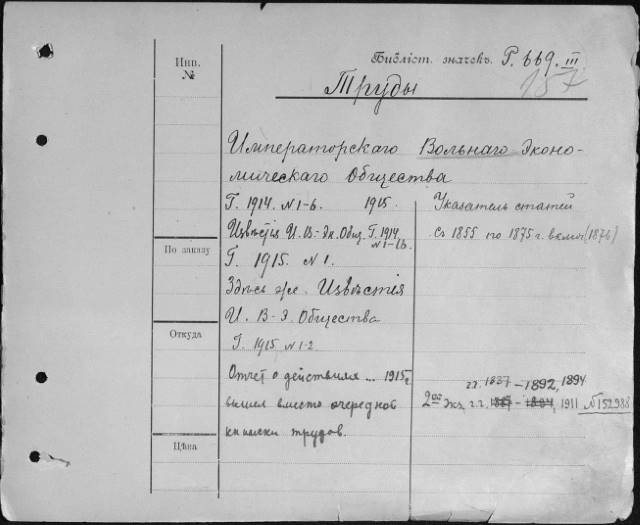 Инв.
№
Библіот. значекъ P. 669. III
157
Труды
Императорскаго Вольнаго Эконо-
мическаго Общества
Г. 1914. N 1-6. 1915.
Указатель статей
съ 1855 по 1875 г. включ (1876)
Извѣстія И. В.-Эк. Общ. Г. 1914
N 1-16
По заказу
Г. 1915. N 1.
Здѣсь же Извѣстія
И. В-Э. Общества
Откуда
Г. 1915. N 1-2.
Отчет о действиях ... 1915 г.
вышел вместо очередной
книжки трудов.
г.г. 1887 - 1892, 1894
2ой экз. г.г. 1887 - 1894, 1911 N 152988
Цѣна